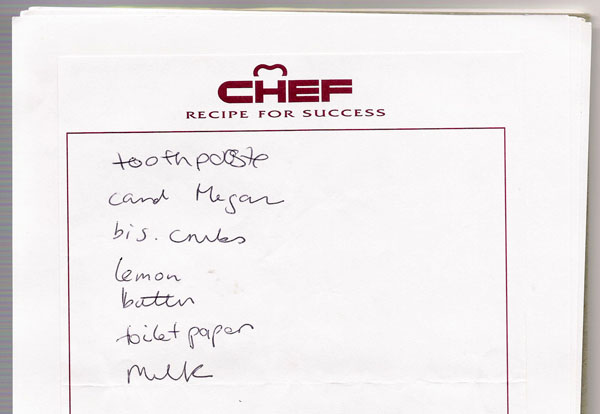 CHEF
RECIPE FOR SUCCESS
toothpaste
card Megan
bis. crubs
lemon
butter
toilet paper
Milk